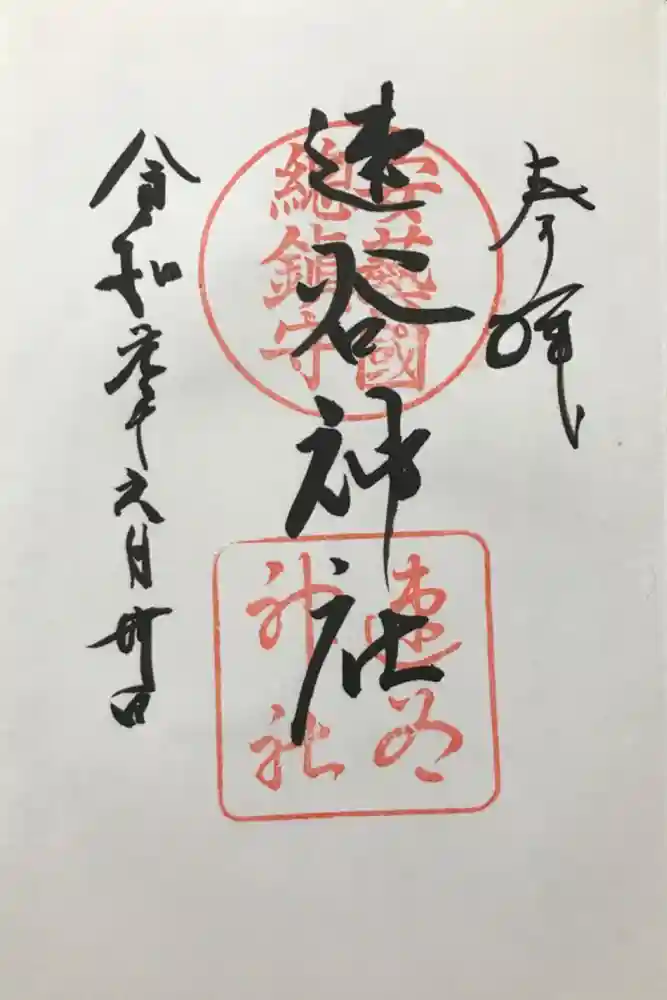 奉拝
速谷神社
安藝國
總鎮守
速谷
神社
令和元年六月卅日